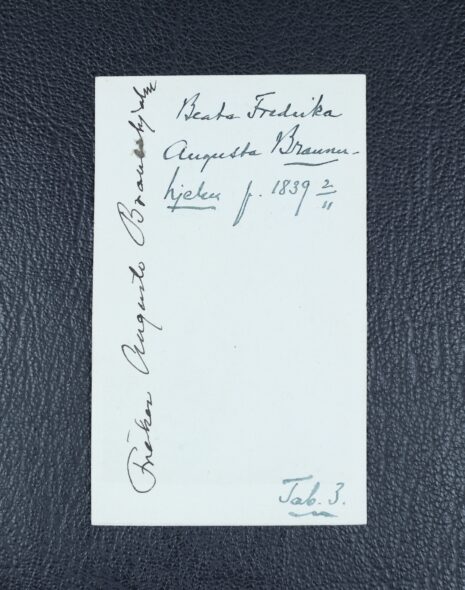 Beata Fredrika
Augusta Braunn-
hjelm f. 1839 2/11
Fröken Augusta Braunerhjelm
Tab. 3.